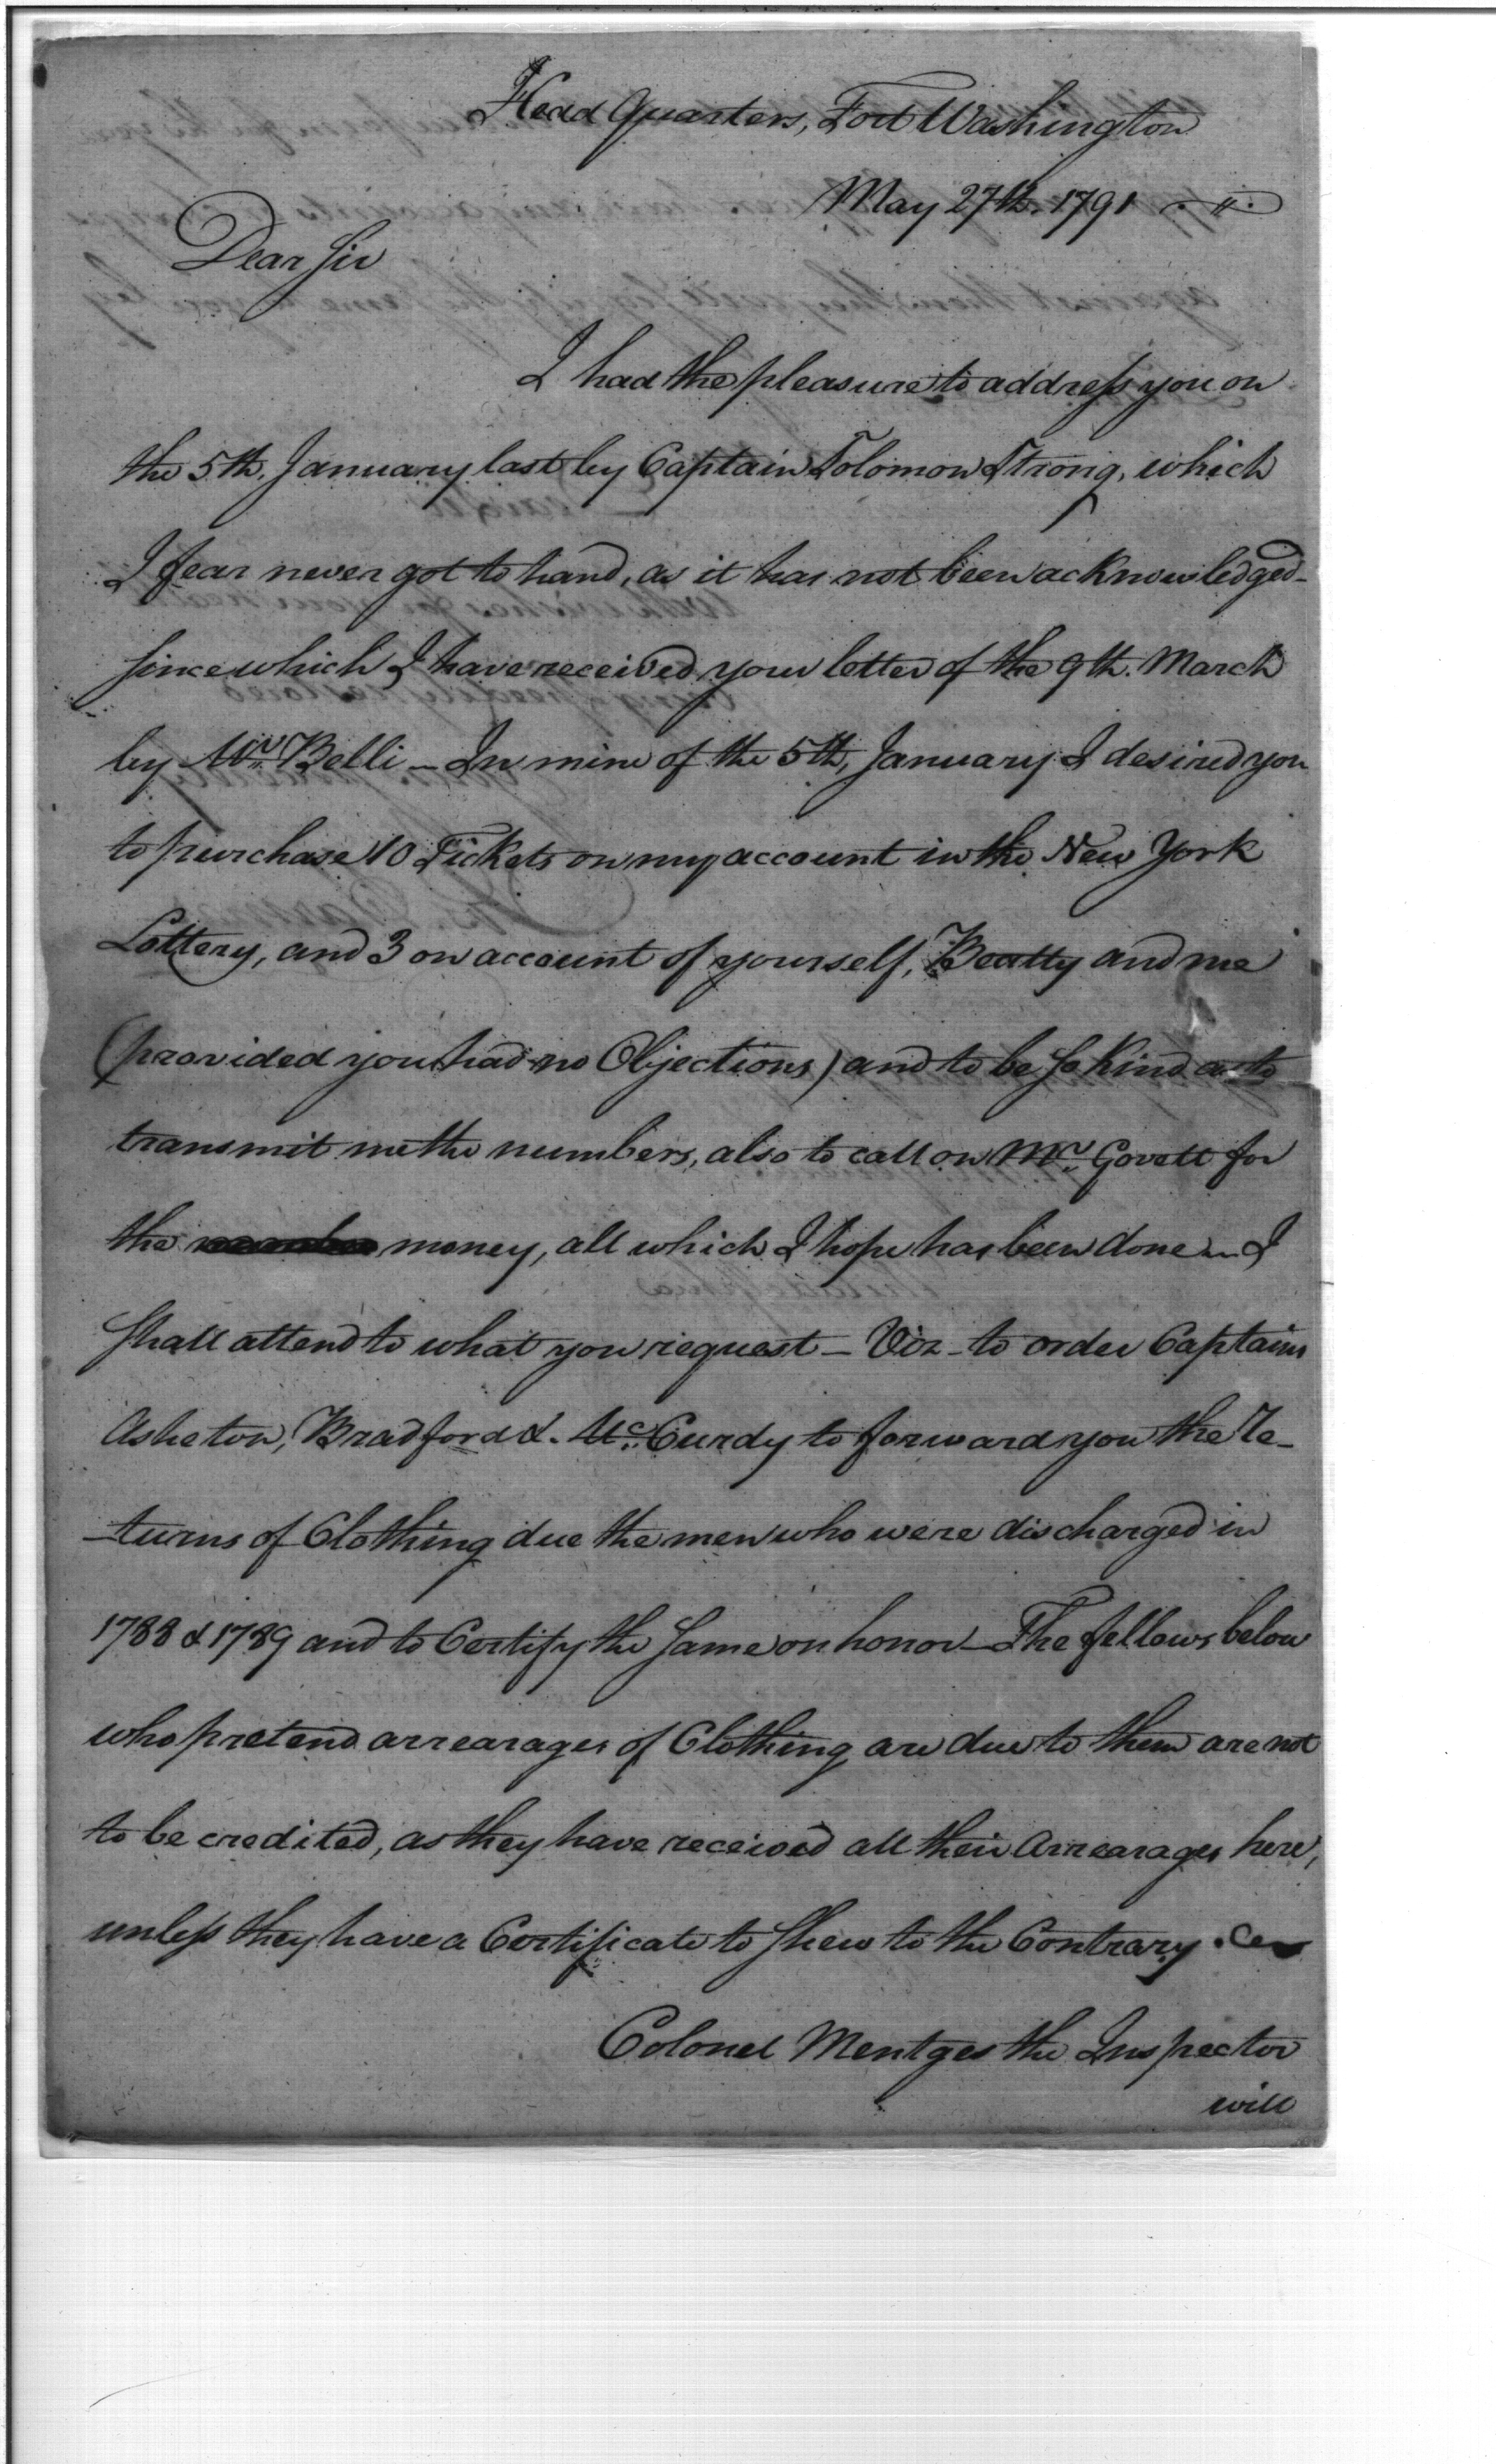 Head Quarters, Fort Washington
May 27th. 1791
Dear Sir
I had the pleasure to address you on
the 5th. January last by Captain Solomon Strong, which
I fear never got to hand, as it has not been acknowledged –
Since which I have received your letter of the 9th. March
by Mr. Belli – In mine of the 5th, January I desired you
to purchase 10 Tickets on my account in the New York
Lottery, and 3 on account of yourself, Beatty and me
(provided you had no Objections) and to be so kind as to
transmit me the numbers, also to call on Mr. Govett for
the money, all which I hope has been done – I
Shall attend to what you request – Viz – to order Captains
Asheton, Bradford &. Mc. Curdy to forward you the Re-
-turns of Clothing due the men who were discharged in
1788 & 1789 and to Certify the Same on honor – The fellows below
who pretend arrearages of Clothing are due to them are not
to be credited, as they have received all their Arrearages here,
unless they have a Certificate to Shew to the Contrary.
Colonel Mentges the Inspector
will